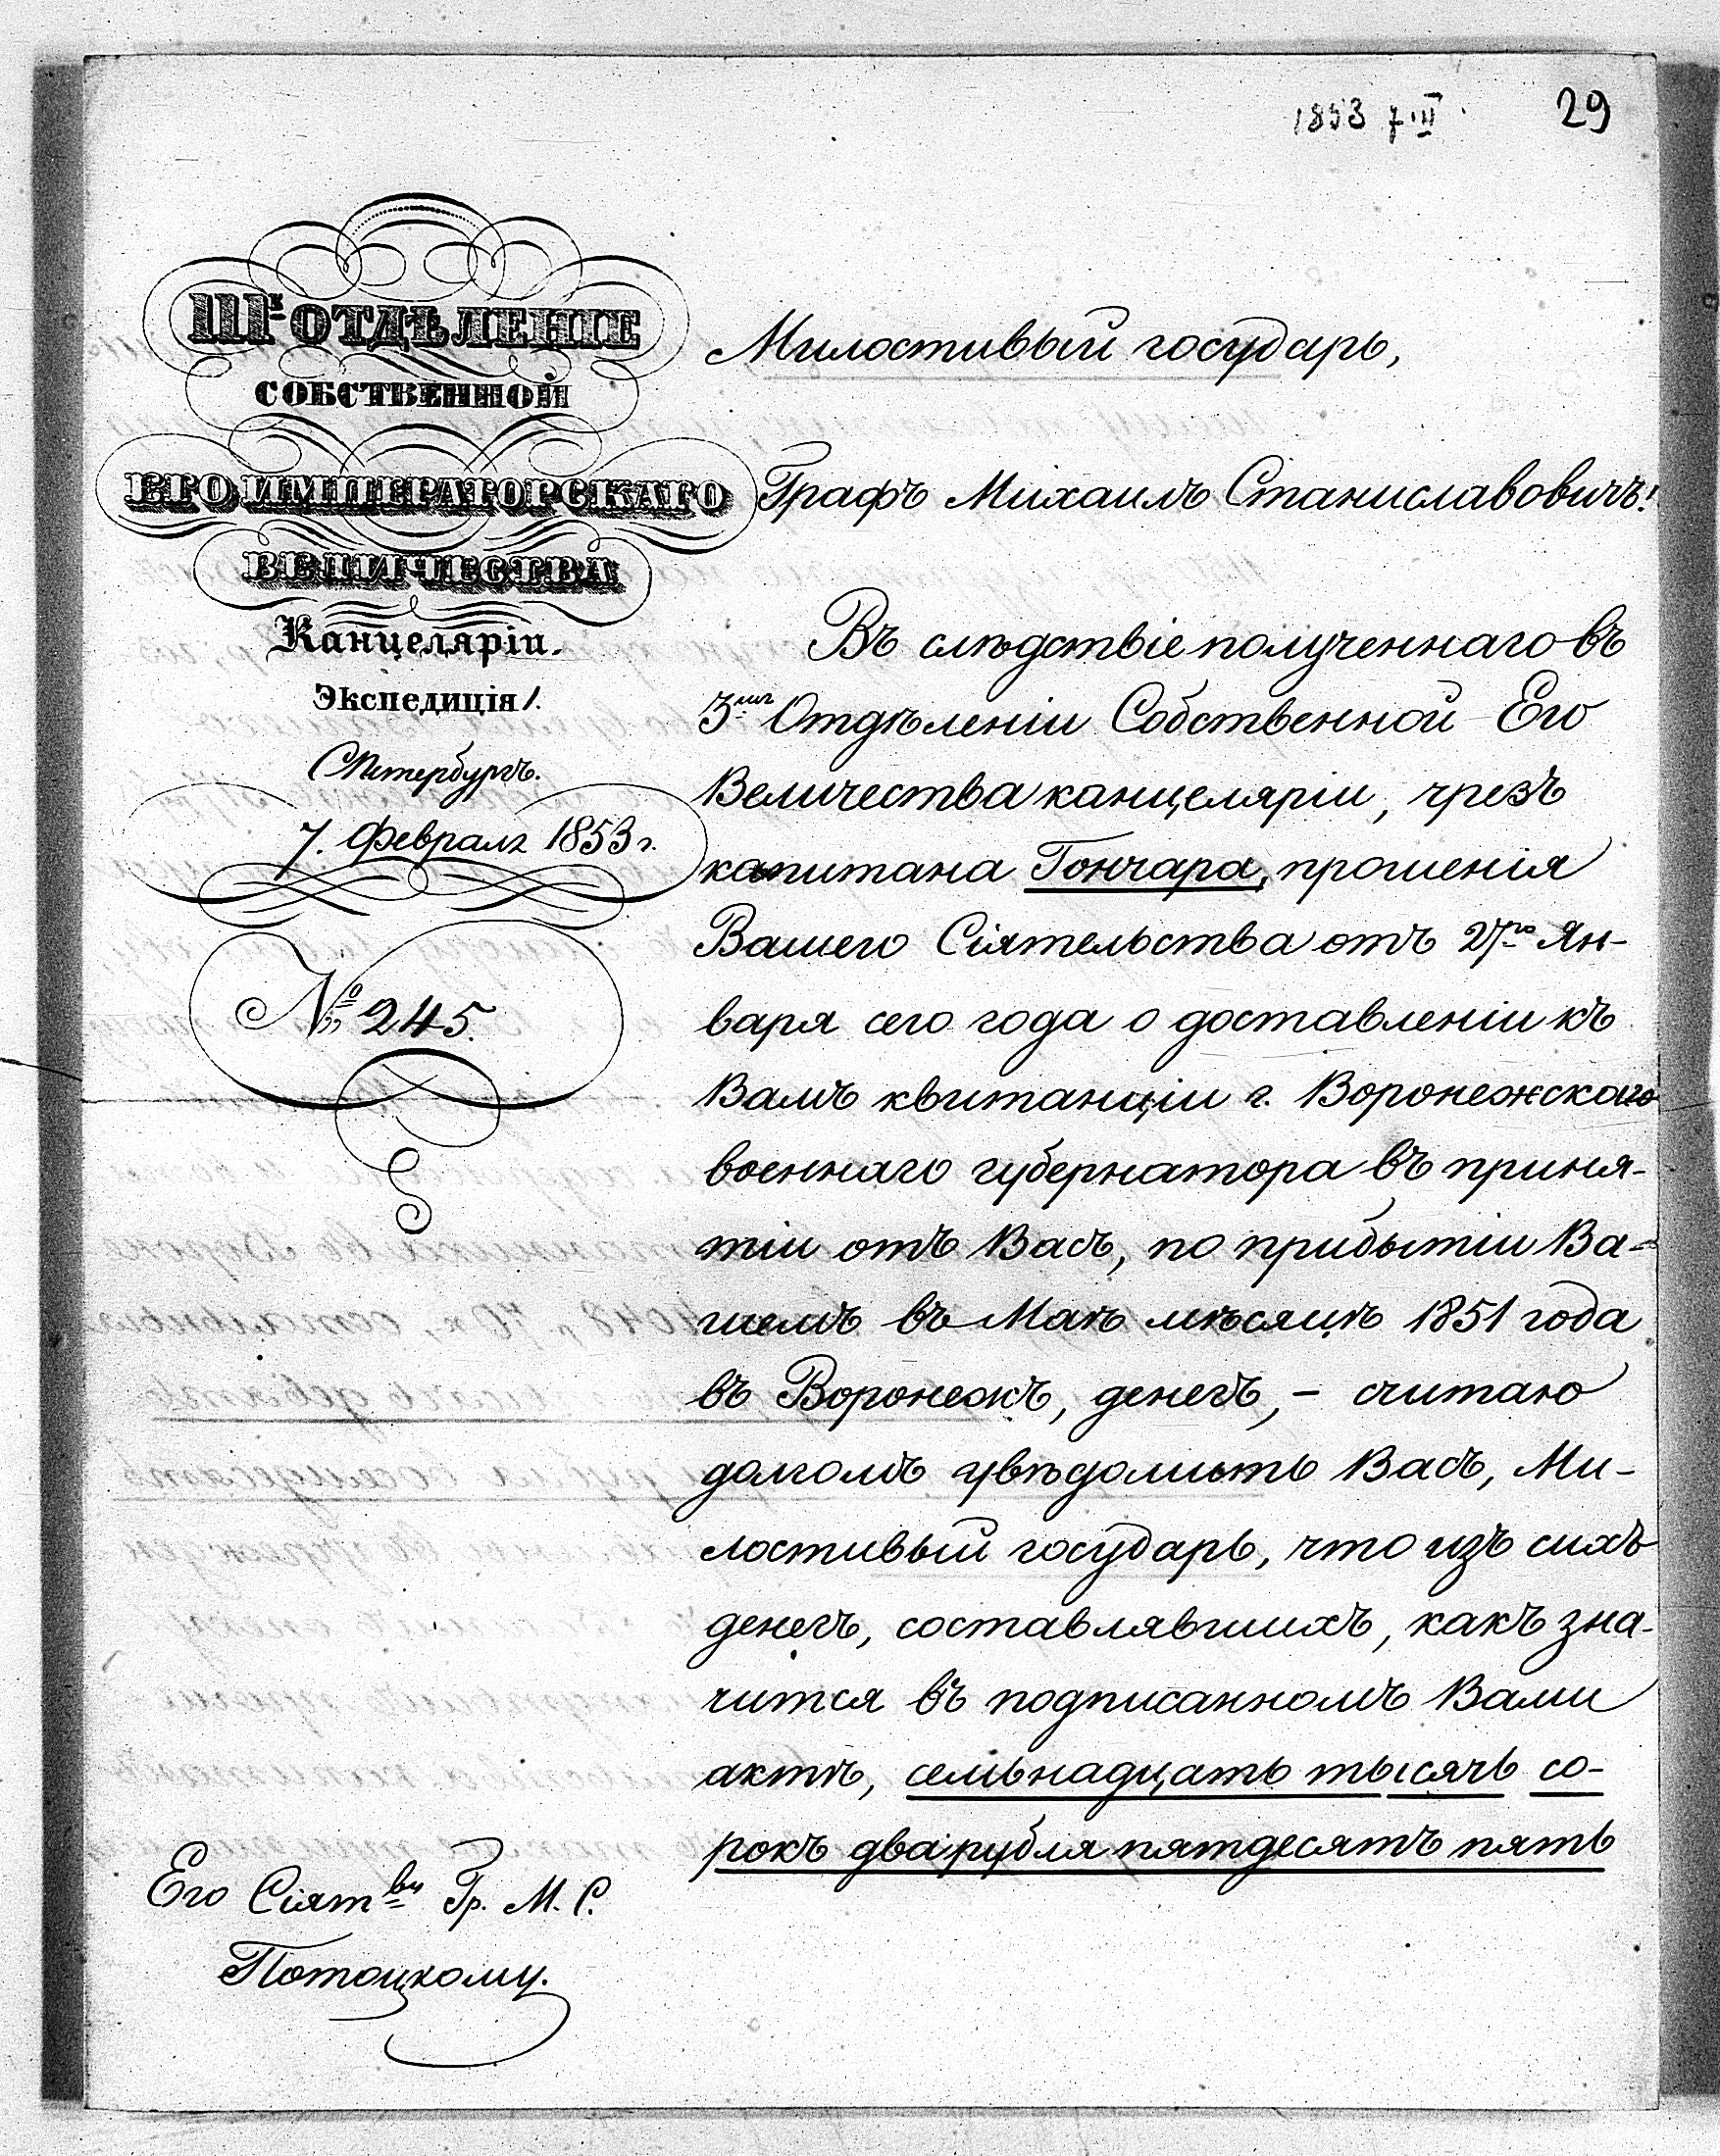 1853 7·II
29
IIIе ОТДѢЛЕНІЕ
СОБСТВЕННОЙ
ЕГО ИМПЕРАТОРСКАГО
ВЕЛИЧЕСТВА
Канцеляріи.
Экспедиція 1.
СПетербургъ.
7. Февраля 1853 г.
№ 245.
Милостивый государь,
Графъ Михаилъ Станиславовичъ!
Въ слѣдствіе полученнаго въ
3мъ Отдѣленіи Собственной Его
Величества канцеляріи, чрезъ
капитана Гончара, прошенія
Вашего Сіятельства отъ 27го Ян-
варя сего года о доставленіи къ
Вамъ квитанціи г. Воронежскаго
военнаго губернатора въ приня-
тіи отъ Васъ, по прибытіи Ва-
шемъ въ Маѣ мѣсяцѣ 1851 года
въ Воронежъ, денегъ, – считаю
долгомъ увѣдомить Васъ, Ми-
лостивый государь, что изъ сихъ
денегъ, составлявшихъ, какъ зна-
чится въ подписанномъ Вами
актѣ, семьнадцать тысячь со-
рокъ два рубля пятдесятъ пять
Его Сіятву Гр. М. С.
Потоцкому.